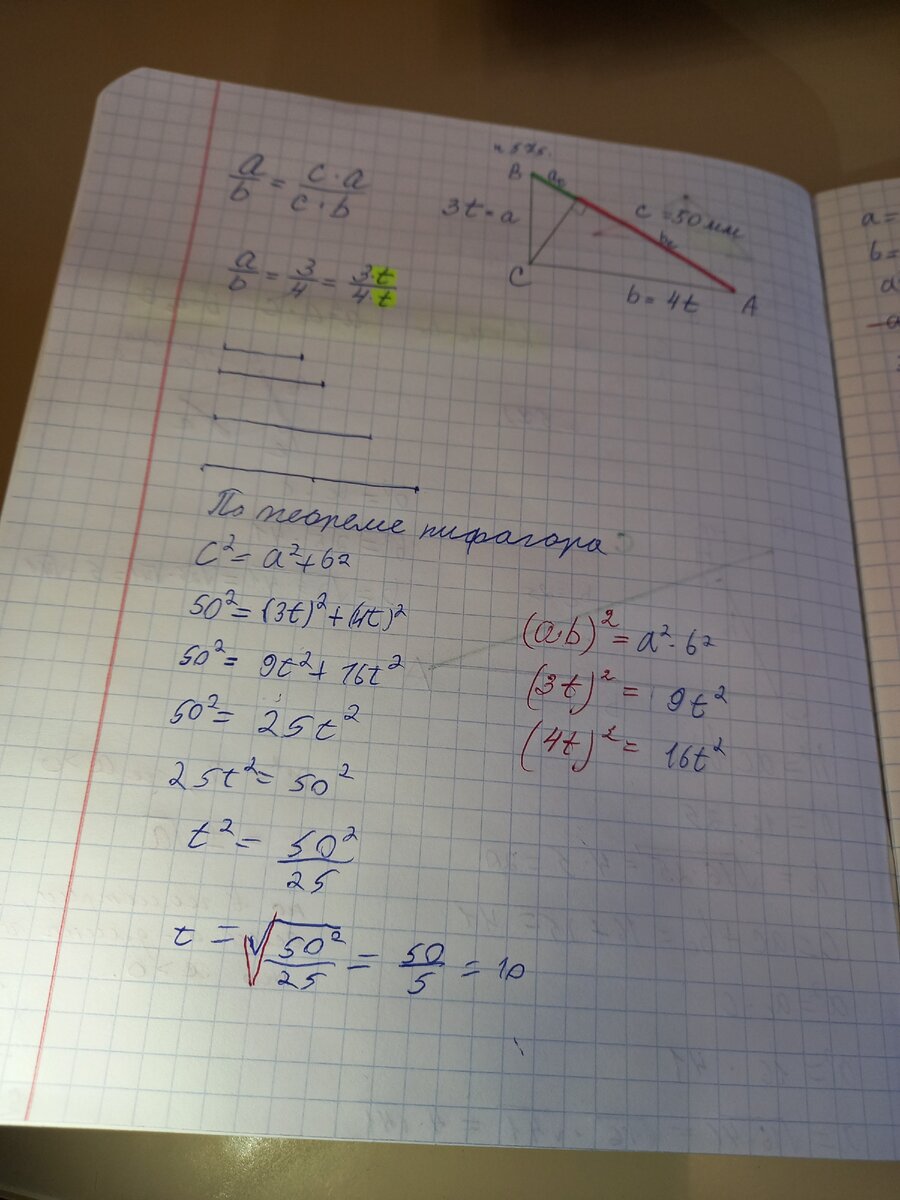 a/b = c·a/c·b
н 575.
B a₀
3t = a
c = 50мм
C
b = 4t A
a/b = 3/4 = 3·t/4·t
По теореме пифагора
c² = a²+б²
50² = (3t)²+(4t)²
50² = 9t²+16t²
50² = 25t²
25t² = 50²
t² = 50²/25
t = √50²/25 = 50/5 = 10
(a·b)² = a²·б²
(3t)² = 9t²
(4t)² = 16t²
a=
b=
a